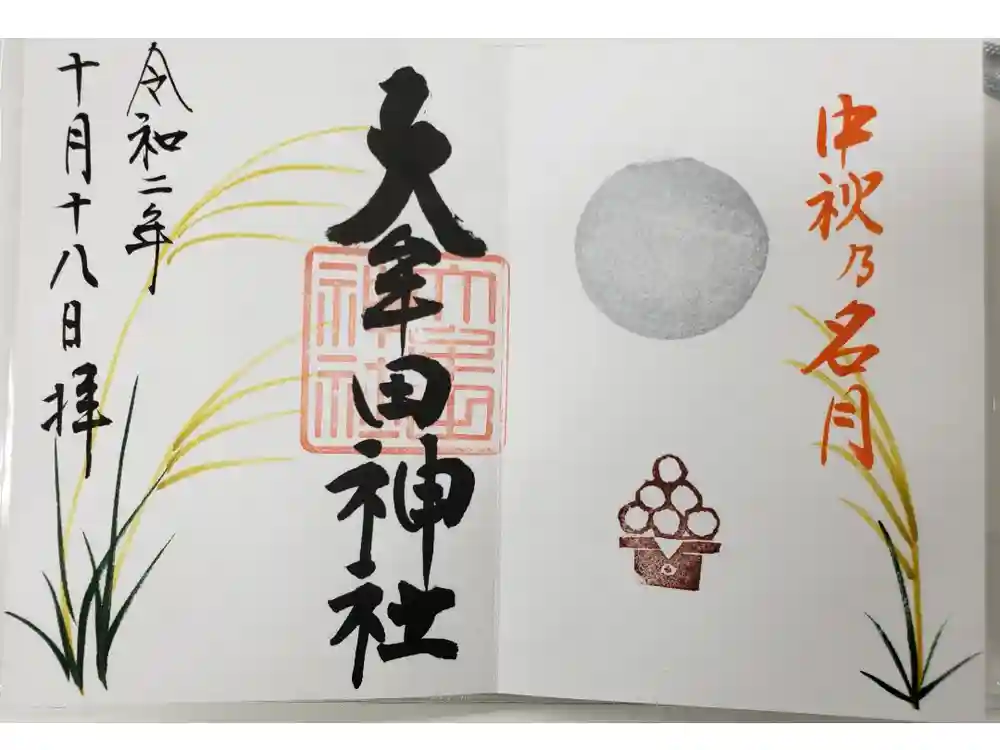 中秋乃名月
大牟田神社
大牟田
神社
令和二年
十月十八日拝